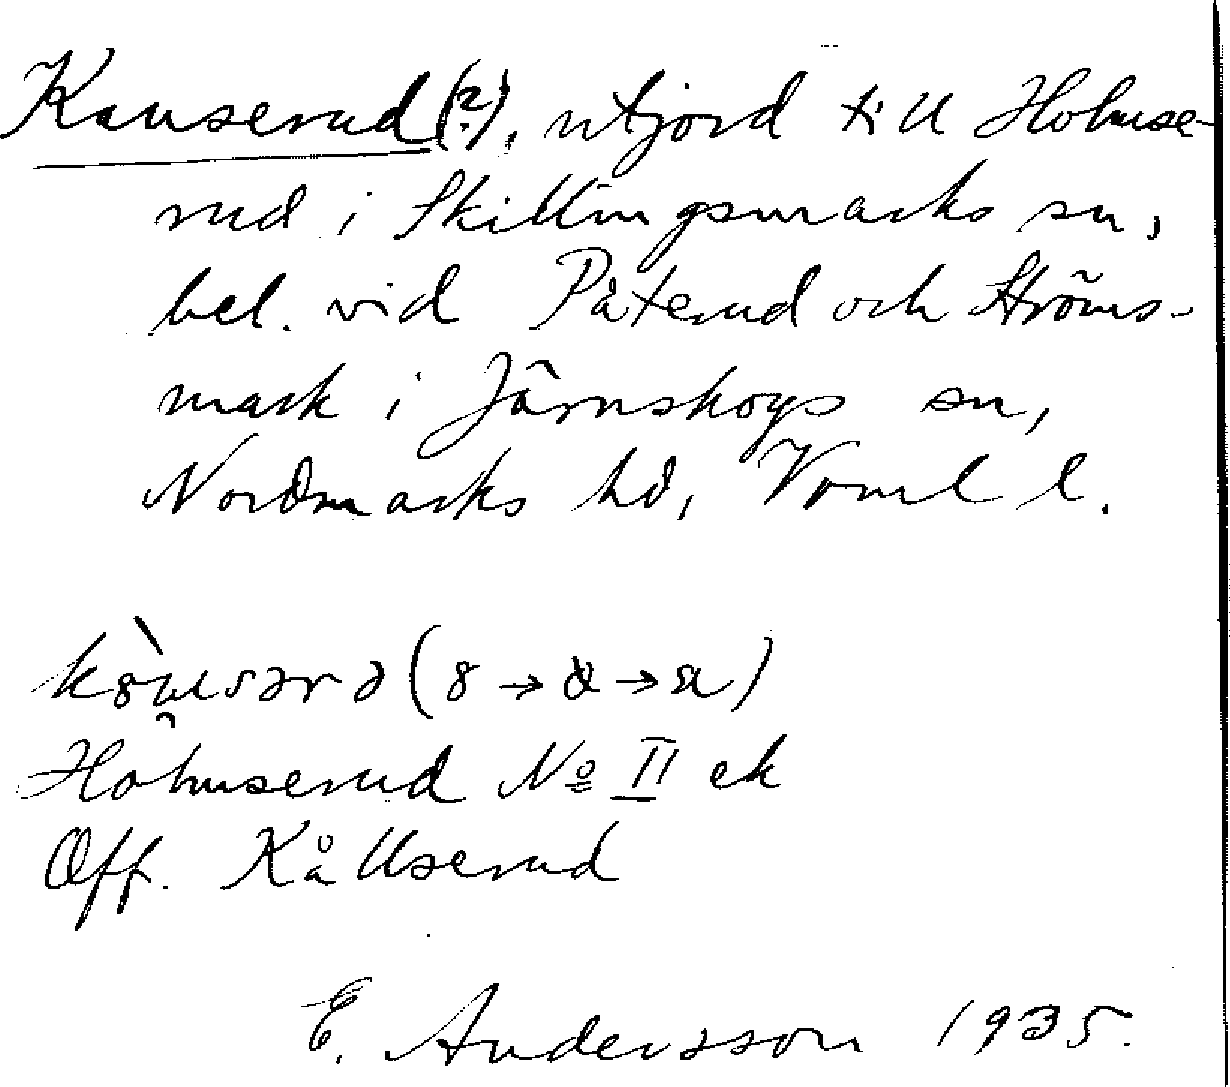 Kauserud (?), utjord till Holmse-
rud i Skillingsmarks sn,
bel. vid Påterud och Ströms-
mark i Järnskogs sn,
Nordmarks hd, Vrml l.
Holmserud № II ek
Off. Kållserud
E. Andersson 1935.